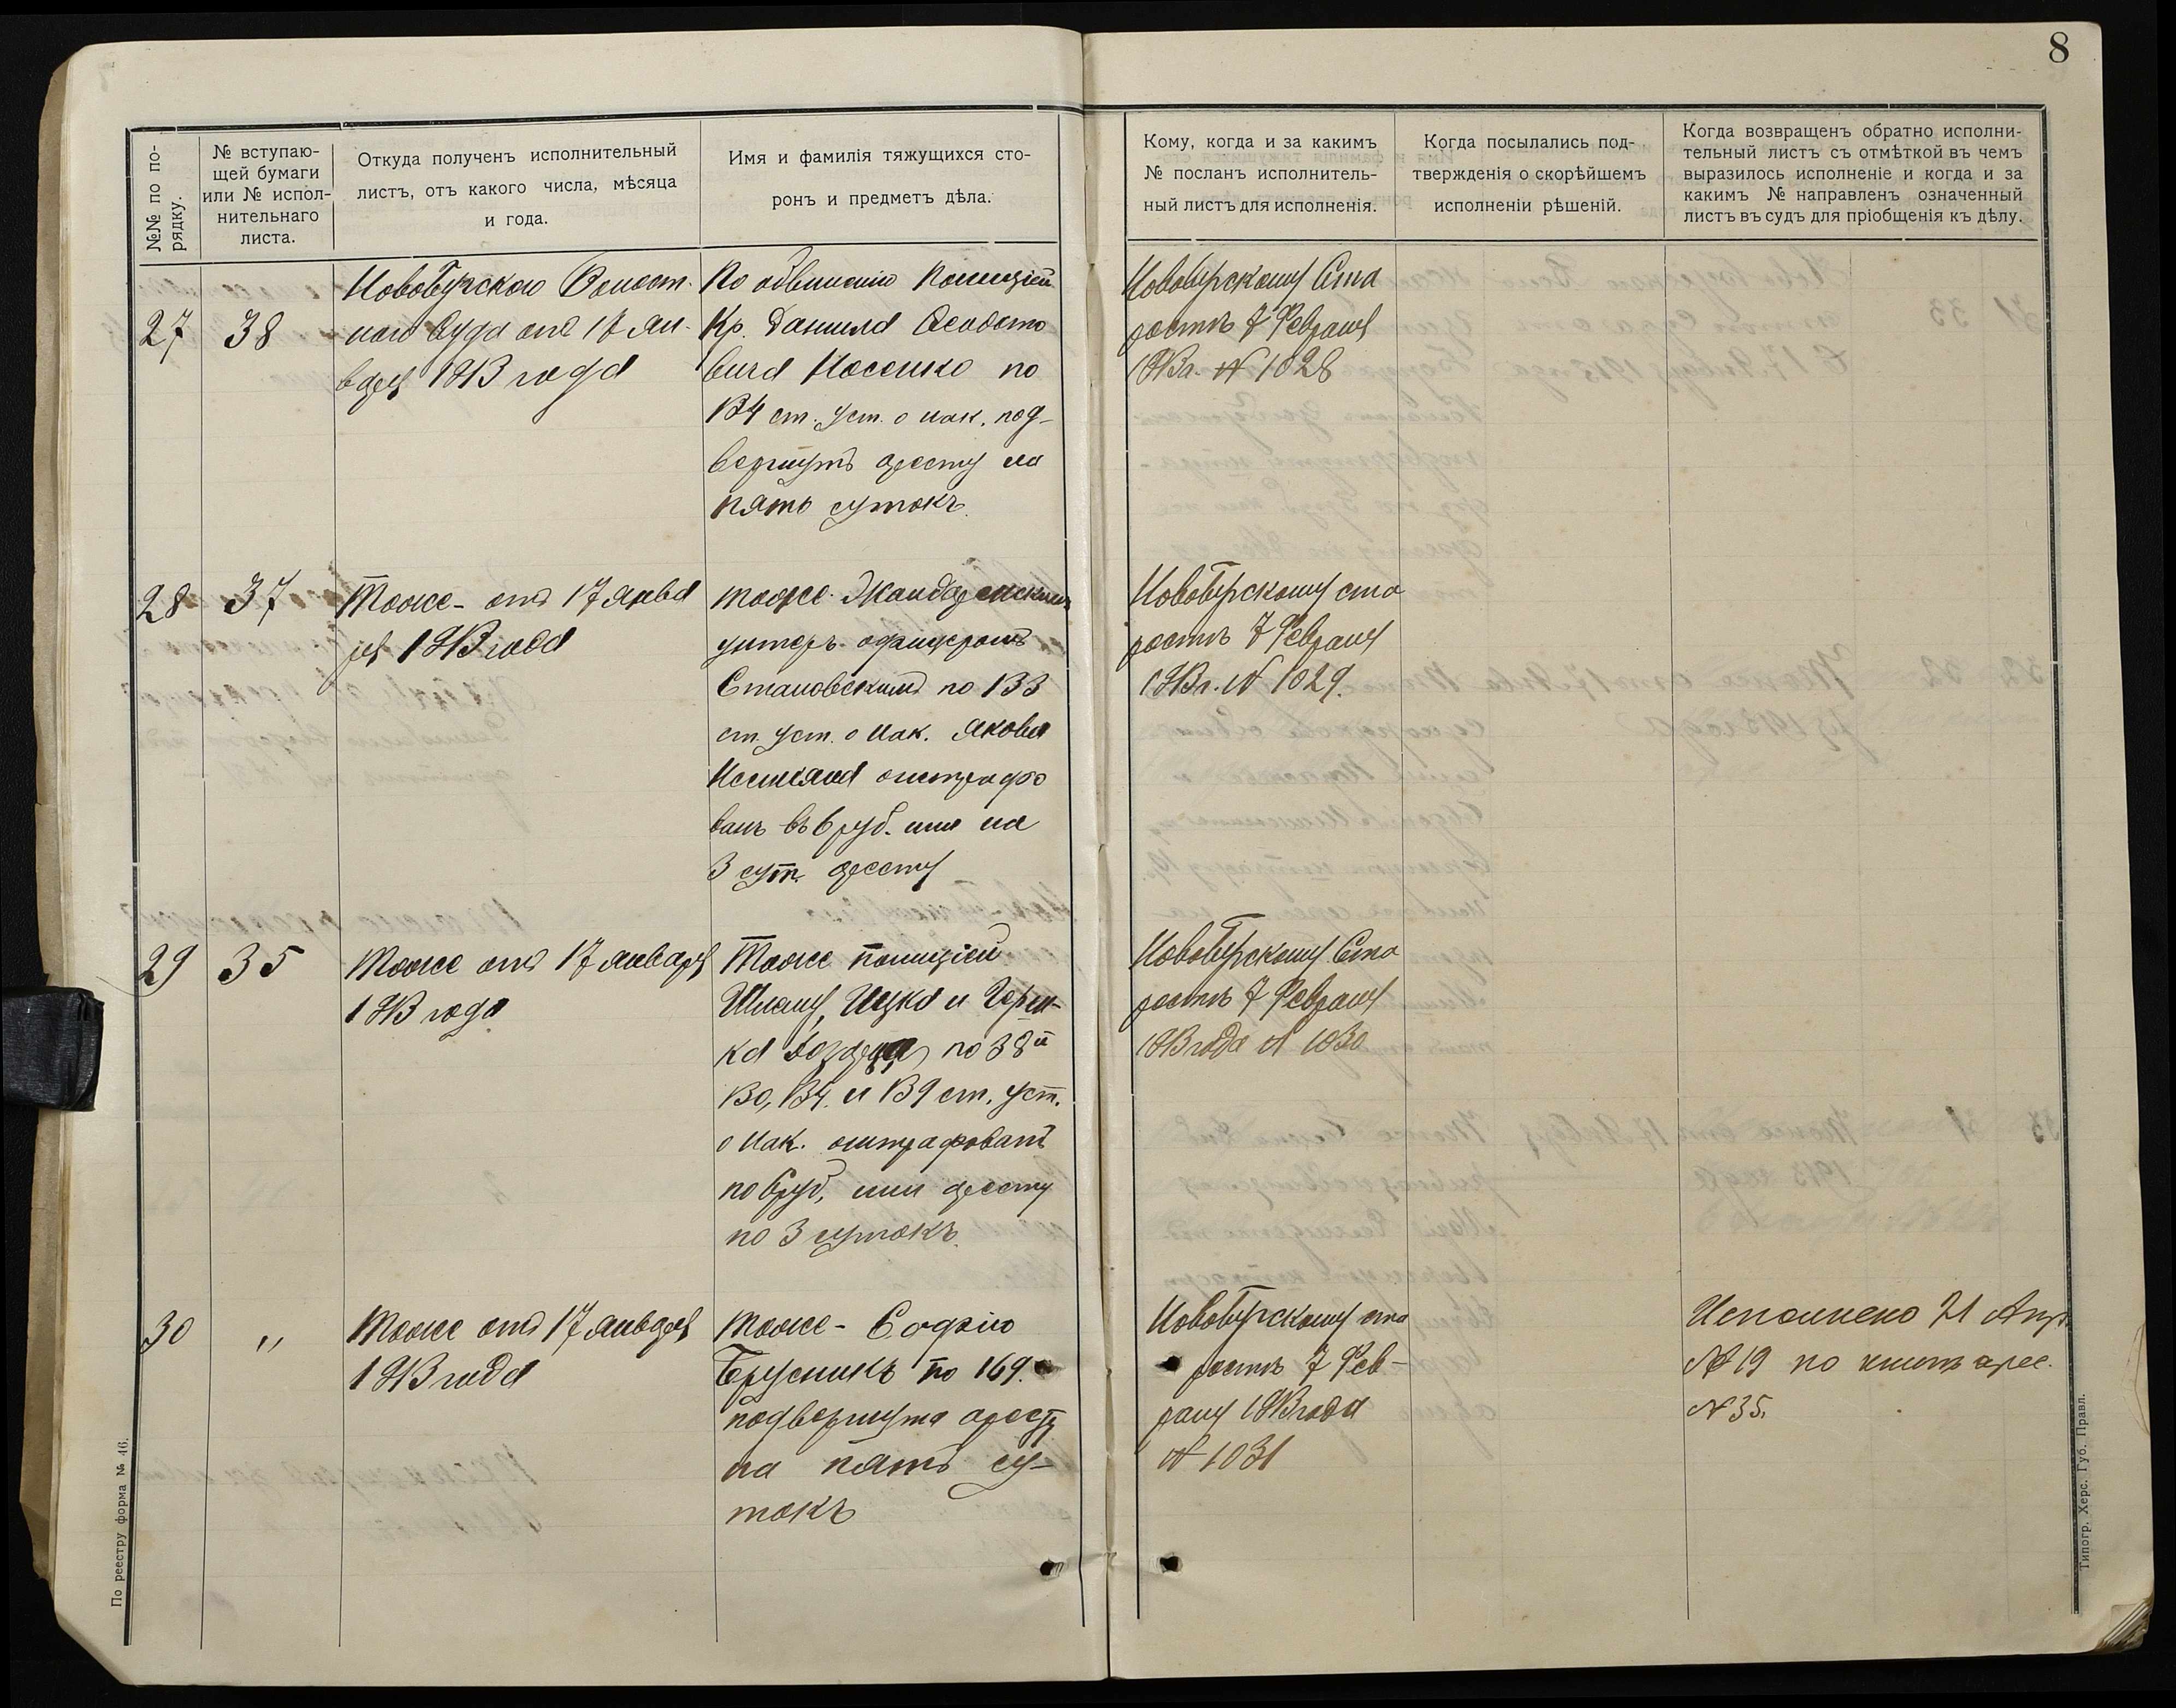 8
№№ по по-
рядку.
№ вступаю-
щей бумаги
или № испол-
нительнаго
листа.
Откуда полученъ исполнительный
листъ, отъ какого числа, мѣсяца
и года.
Имя и фамилія тяжущихся сто-
ронъ и предметъ дѣла.
Кому, когда и за какимъ
№ посланъ исполнитель-
ный листъ для исполненія.
Когда посылались под-
твержденія о скорѣйшемъ
исполненіи рѣшеній.
Когда возвращенъ обратно исполни-
тельный листъ съ отмѣткой въ чемъ
выразилось исполненіе и когда и за
какимъ № направленъ означенный
листъ въ судъ для пріобщенія къ дѣлу.
27
38
Новобугскаго Волост-
ного Суда отъ 17 Ян-
варя 1913 года
По обвинению Полиціей
Кр. Данила Ѳеодосто
вича Носенко по
134 ст. уст. о нак. под-
вергнутъ аресту на
пять сутокъ.
Новобугскому Ста
ростѣ 7 Февраля
1913 г. № 1028
28
37
Тоже - отъ 17 Янва
ря 1913 года
тоже Жандармскимъ
унтеръ-офицеромъ
Становскимъ по 133
ст. уст. о нак. Якова
оштрафо
ванъ въ 6 руб. или на
3 сут. аресту
Новобугскому ста
ростѣ 7 Февраля
1913 г. № 1029.
29
35
Тоже отъ 17 января
1913 года
Тоже полиціей
Шлему, Ицка и
по 38 и
130, 134 и 139 ст. уст.
о нак. оштрафованъ
по 6 руб, или аресту
по 3 сутокъ.
Новобугскому Ста
ростѣ 7 Февраля
1913 года № 1030
30
"
Тоже отъ 17 января
1913 года
тоже - Софію
Брусникъ по 169.
подвергнута аресту
на пять су-
токъ
Новобугскому ста
ростѣ 7 Фев-
раля 1913 года
№ 1031
Исполнено 21 Апр.
№ 19 по книгѣ арес.
№ 35.
По реестру форма № 46.
Типогр. Херс. Губ. Правл.